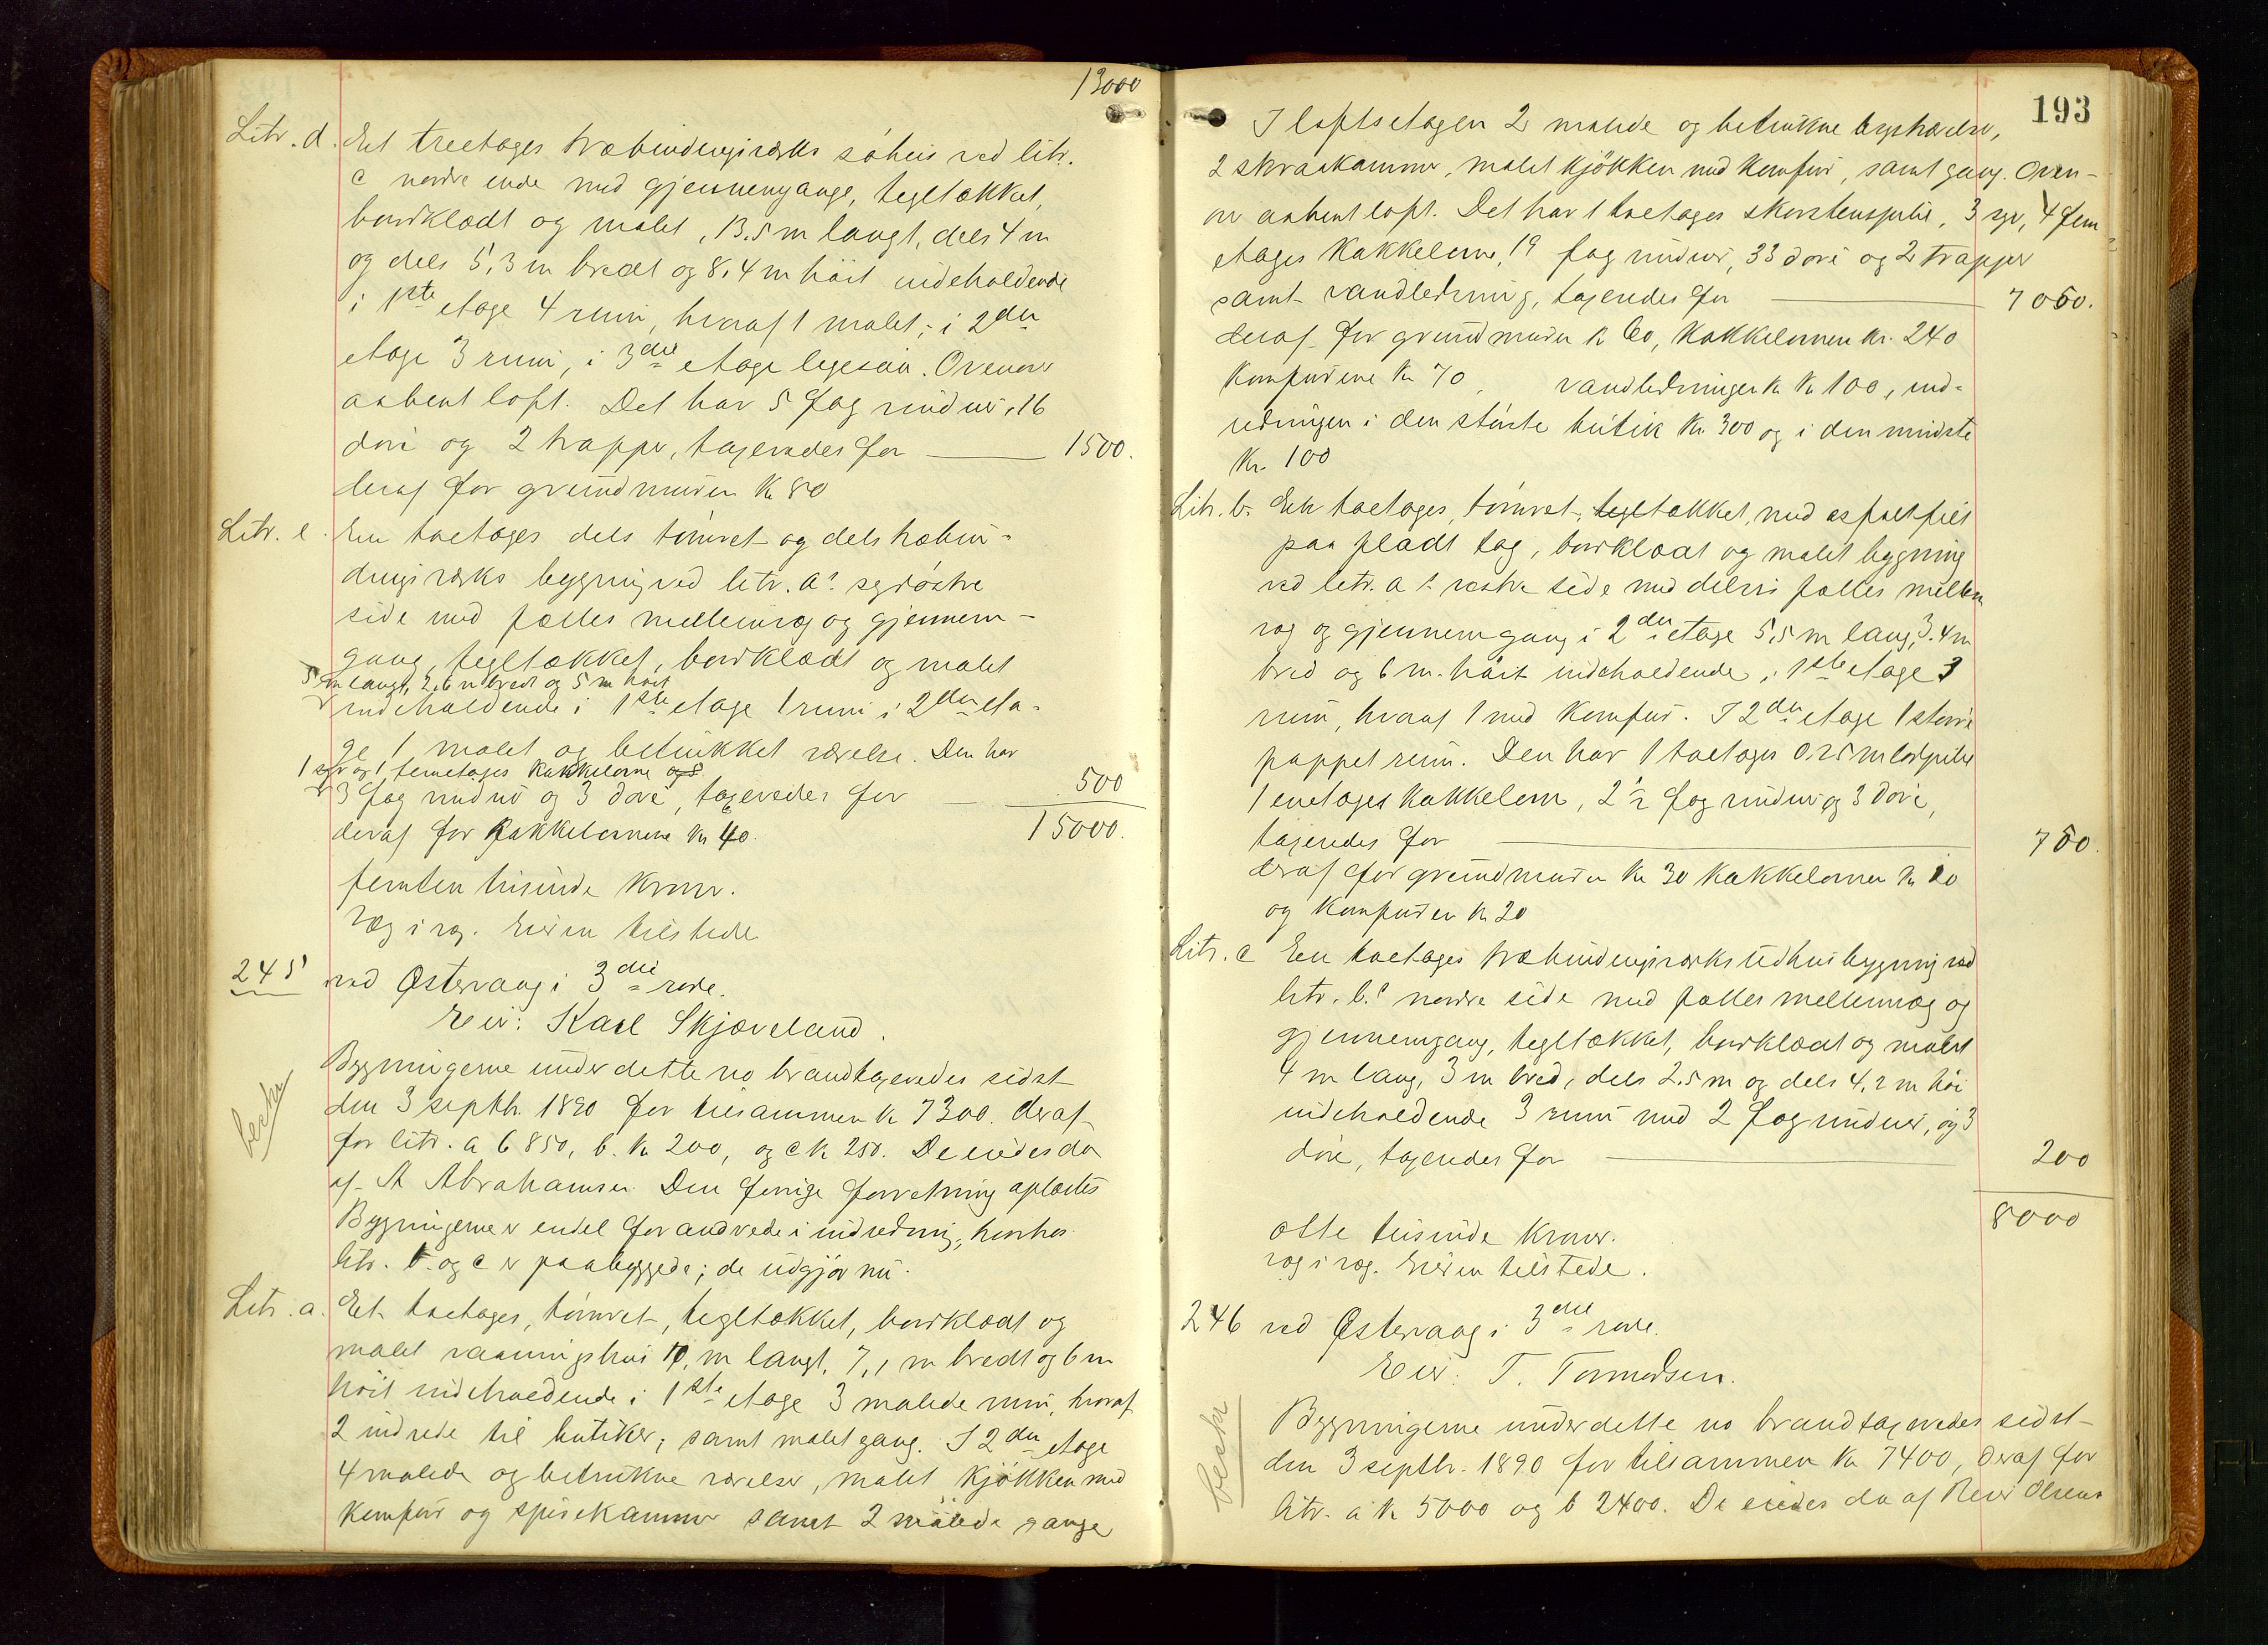 13000
Litr. d. Et treetages træbindingsværks söhus ved litr.
c nordre ende med gjennemgange, tegltækket,
bordklædt og malet, 13.5 m langt, dels 4 m
og dels 5,3 m bredt og 8,4 m höit indeholdende
i 1ste etage 4 rum, hvoraf 1 malet; i 2den
etage 3 rum, i 3die etage ligesaa. Ovenover
aabent loft. Det har 5 fag vinduer, 16
döre og 2 trapper, taxeredes for 1500.
deraf for grundmuren Kr 80
Litr. e. En toetages dels tömret og dels træbin-
dingsværks bygning ved litr. a's sydöstre
side med fælles mellemvæg og gjennem-
gang, tegltækket, bordklædt og malet
5 m langt, 2,6 m bredt og 5 m höit
indeholdende i 1ste etage 1 rum i 2den eta-
ge 1 malet og betrukket værelse. Den har
1 og 1 femetages kakkelovne og
3 fag vinduer og 3 döre, taxeredes for 500
deraf for kakkelovnene Kr 40. 15000.
femten tusinde kroner.
Væg i væg. Eieren tilstede
245 ved Østervaag i 3die rode.
Eier: Karl Skjæveland.
Bygningerne under dette no brandtaxeredes sidst
den 3 septbr. 1890 for tilsammen kr 7300. deraf
for litr. a 6850, b. kr 200, og c kr 250. De eiedes da
af A Abrahamsen. Den forrige forretning oplæstes
Bygningerne er endel forandrede i indredning, hvorhos
litr. b. og c er paabyggede; de udgjör nu.
beskr
Litr. a. Et toetages, tömret, tegltækket, bordklædt og
malet vaaningshus 10, m langt, 7,1 m bredt og 6 m
höit indeholdende i 1ste etage 3 malede rum, hvoraf
2 indrede til butiker; samt malet gang. I 2den etage
4 malede og betrukne værelser, malet kjökken med
komfur og spisekammer samt 2 malede gange
193
I loftsetagen 2 malede og betrukne tagværelser,
2 skraakammer, malet kjökken med komfur, samt gang. Oven-
over aabent loft. Det har 1 toetages skorstenspibe, 3 4 fem
etages kakkelovne, 19 fag vinduer, 33 döre og 2 trapper
samt vandledning, taxeredes for 7050.
deraf for grundmuren kr 60, kakkelovnen kr. 240
komfurene kr 70, vandledningen kr 100, ind-
redningen i den störste butik kr. 300 og i den mindste
kr. 100
Litr. b. En toetages, tömret, tegltækket, med asfaltfilt
paa fladt tag, bordklædt og malet bygning
ved litr. a's vestre side med delvis fælles mellem
væg og gjennemgang i 2den etage 5,5 m lang, 3.4 m
bred og 6 m. höit indeholdende i 1ste etage 3
rum, hvoraf 1 med komfur. I 2den etage 1 större
pappet rum. Den har 1 toetages 0.25 m
1 enetages kakkelovn, 2 1/2 fag vinduer og 3 döre,
taxeredes for 750.
deraf for grundmuren kr 30 kakkelovnen kr 10
og komfuren kr 20
Litr. c En toetages træbindingsværks udhusbygning ved
litr. b.s nordre side med fælles mellemvæg og
gjennemgang, tegltækket, bordklædt og malet
4 m lang, 3 m bred, dels 2.5 m og dels 4,2 m höi
indeholdende 3 rum med 2 fag vinduer, og 3
döre, taxeredes for 200
8000
otte tusinde kroner.
væg i væg. Eieren tilstede.
246 ved Østervaag i 3die rode.
Eier: T. Tormodsen.
beskr
Bygningerne under dette no brandtaxeredes sidst
den 3 septbr. 1890 for tilsammen kr 7400, deraf for
litr. a kr 5000 og b 2400. De eiedes da af Olsens